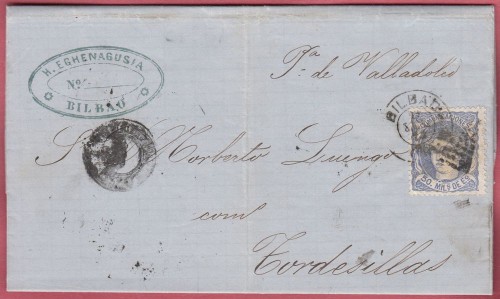 H. EGHENAGUSIA
Nº
BILBAO
Pª de Valladolid
BILBAO
50 MILS DE E
S Norberto Luengo
com
Tordesillas